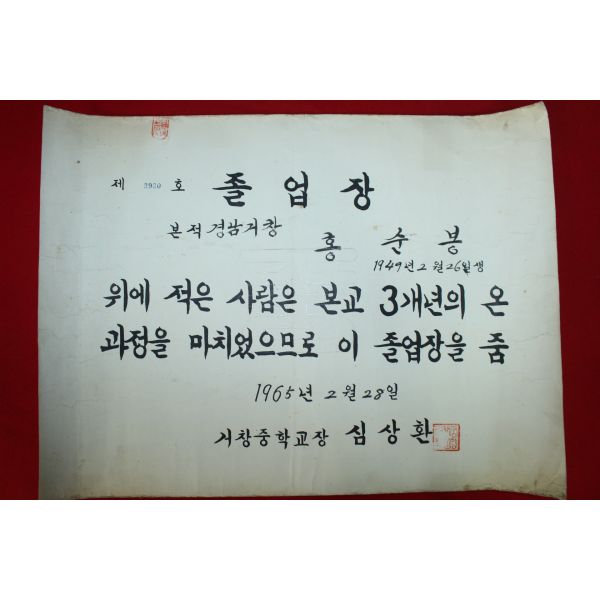 제 3920 호 졸업장
본적 경남거창
홍순봉
1949년 2월 26일생
위에 적은 사람은 본교 3개년의 온
과정을 마치었으므로 이 졸업장을 줌
1965년 2월 28일
거창중학교장 심상환